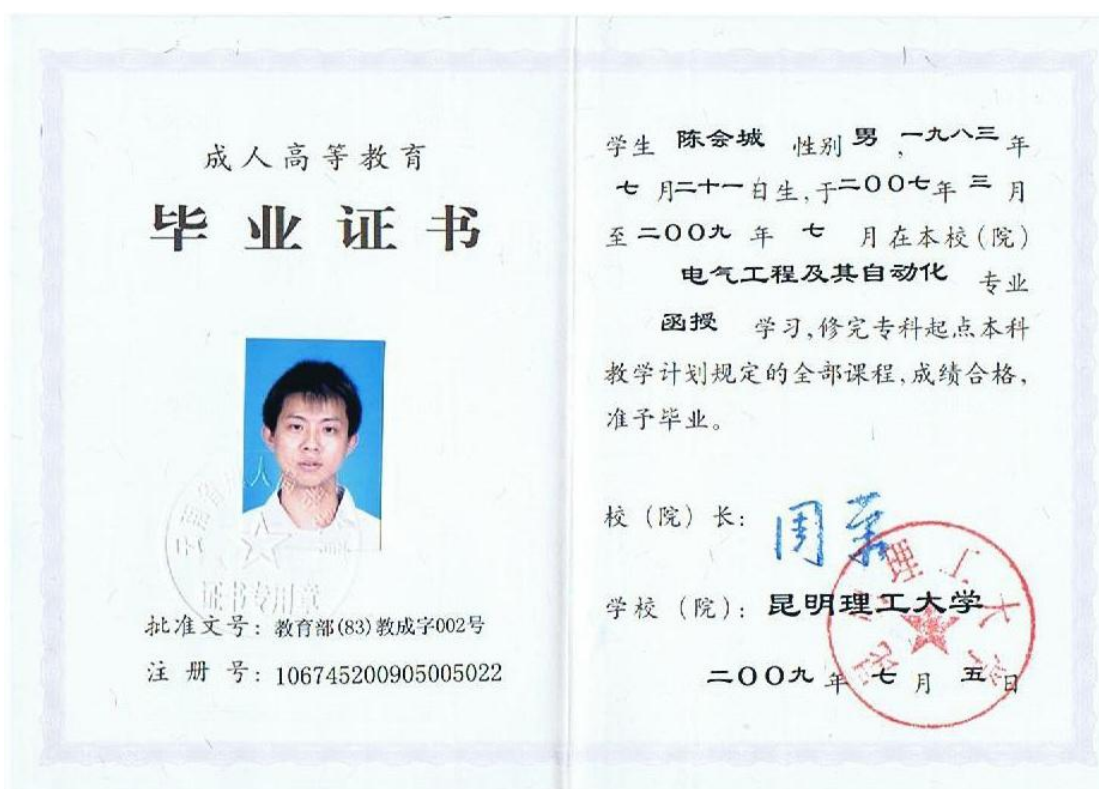 成人高等教育
毕业证书
证书专用章
批准文号：教育部(83)教成字002号
注册号：106745200905005022
学生 陈会城 性别 男 ,一九八三 年
七 月二十一日生,于二〇〇七年 三 月
至二〇〇九 年 七 月在本校(院)
电气工程及其自动化 专业
函授 学习,修完专科起点本科
教学计划规定的全部课程,成绩合格,
准予毕业。
校（院）长：周荣
学校（院）：昆明理工大学
昆明理工大学
二〇〇九 年 七 月 五 日